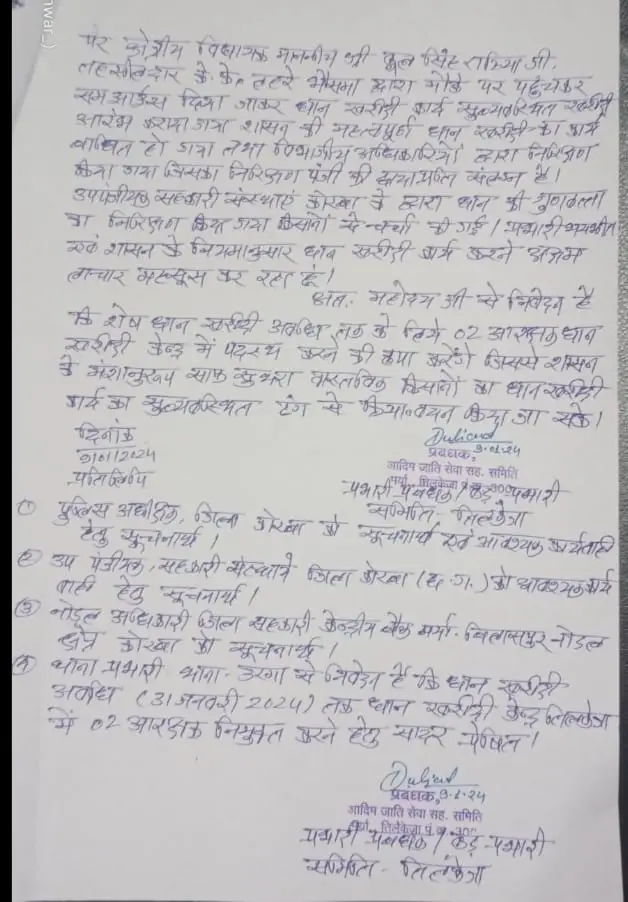 nwar_)
पर क्षेत्रीय विधायक माननीय श्री फूल सिंह राठिया जी,
तहसीलदार के.के. लहरे भैसमा द्वारा मौके पर पहुंचकर
समझाईस दिया जाकर धान खरीदी कार्य सुव्यवस्थित खरीदी
आरंभ कराया गया शासन की महत्वपूर्ण धान खरीदी का कार्य
बाधित हो गया तथा विभागीय अधिकारियों द्वारा निरिक्षण
किया गया जिसका निरिक्षण पंजी की छायाप्रति संलग्न है।
उपपंजीयक सहकारी संस्थाएं कोरबा के द्वारा धान की गुणवत्ता
का निरिक्षण किया गया किसानों से चर्चा की गई। प्रभारी भयभीत
एवं शासन के नियमानुसार धान खरीदी कार्य करने अक्षम
लाचार महसूस कर रहा हूं।
अतः महोदय जी से निवेदन है
कि शेष धान खरीदी अवधि तक के लिये 02 आरक्षक धान
खरीदी केन्द्र में पदस्थ करने की कृपा करेंगे जिससे शासन
के मंशानुरूप साफ सुथरा वास्तविक किसानों का धान खरीदी
कार्य का सुव्यवस्थित ढंग से क्रियान्वयन किया जा सके।
दिनांक
9/01/2024
प्रबंधक, 9-1-24
आदिम जाति सेवा सह. समिति
प्रतिलिपि
प्रभारी प्रबंधक / केंद्र प्रभारी
समिति - तिलकेजा
① पुलिस अधीक्षक, जिला कोरबा को सूचनार्थ एवं आवश्यक कार्यवाही
हेतु सूचनार्थ।
② उप पंजीयक, सहकारी संस्थायें जिला कोरबा (छ.ग.) को आवश्यक कार्य
वाही हेतु सूचनार्थ।
③ नोडल अधिकारी जिला सहकारी केन्द्रीय बैंक मर्या. बिलासपुर नोडल
क्षेत्र कोरबा को सूचनार्थ।
④ थाना प्रभारी थाना - उरगा से निवेदन है कि धान खरीदी
अवधि (31 जनवरी 2024) तक धान खरीदी केन्द्र तिलकेजा
में 02 आरक्षक नियुक्त करने हेतु सादर प्रेषित।
प्रबंधक, 9-1-24
आदिम जाति सेवा सह. समिति
मर्या. तिलकेजा पं.क्र. 300
प्रभारी प्रबंधक / केंद्र प्रभारी
समिति - तिलकेजा